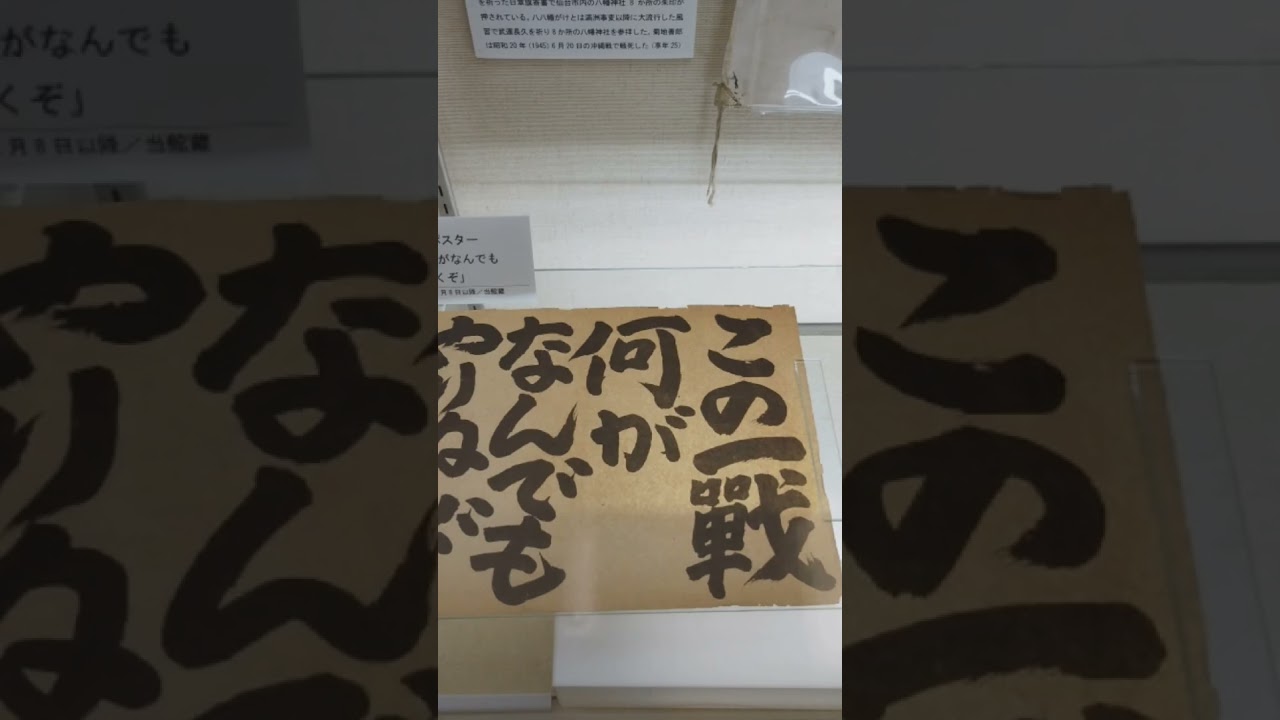 を祈った日章旗寄書で仙台市内の八幡神社 8 か所の朱印が
押されている。八八幡がけとは満洲事変以降に大流行した風
習で武運長久を祈り8か所の八幡神社を参拝した。菊地善郎
は昭和20年(1945)6月20日の沖縄戦で戦死した(享年25)
ポスター
がなんでも
くぞ」
月8日以降/当館蔵
この一戰
何が
なんでも
やりぬ
がなんでも
くぞ」
月8日以降/当館蔵
この一
なん
やりぬ